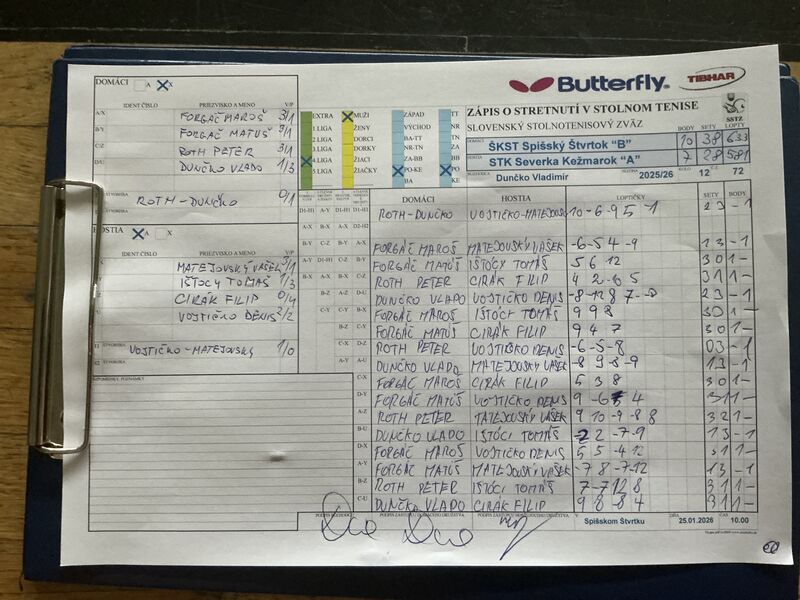 DOMÁCI A X
IDENT ČÍSLO PRIEZVISKO A MENO V/P
A/X FORGÁČ MAROŠ 3/1
B/Y FORGÁČ MATUŠ 3/1
C/Z ROTH PETER 3/1
D/U DUNČKO VLADO 1/3
ŠTVORHRA
ROTH-DUNČKO 0/1
HOSTIA A X
IDENT ČÍSLO PRIEZVISKO A MENO V/P
MATEJOVSKÝ VAŠEK 3/1
IŠTOCY TOMÁŠ 1/3
CIRÁK FILIP 0/4
VOJTIČKO DENIS 2/2
ŠTVORHRA
VOJTIČKO-MATEJOVSKÝ 1/0
PRIPOMIENKY, POZNÁMKY
Butterfly
TIBHAR
ZÁPIS O STRETNUTÍ V STOLNOM TENISE
SLOVENSKÝ STOLNOTENISOVÝ ZVÄZ
SSTZ
EXTRA MUŽI ZÁPAD TT
1 LIGA ŽENY VÝCHOD NR
2 LIGA DORCI BA-TT TN
3 LIGA DORKY NR-TN ZA
4 LIGA ŽIACI ZA-BB BB
5 LIGA ŽIAČKY PO-KE PO
BA KE
BODY SETY LOPTY
DOMÁCI ŠKST Spišský Štvrtok "B" 10 38 633
HOSTIA STK Severka Kežmarok "A" 7 28 581
ROZHODCA Dunčko Vladimír SEZÓNA 2025/26 KOLO 12 Č. 72
DOMÁCI HOSTIA LOPTIČKY SETY BODY
ROTH-DUNČKO VOJTIČKO-MATEJOVSKÝ 10 -6 -9 5 -1 2 3 - 1
FORGÁČ MAROŠ MATEJOUSKÝ VAŠEK -6 -5 4 -9 1 3 - 1
FORGÁČ MATÚŠ IŠTÓCY TOMÁŠ 5 6 12 3 0 1 -
ROTH PETER CIRÁK FILIP 3 1 1 -
DUNČKO VLADO VOJTIČKO DENIS 2 3 - 1
FORGÁČ MAROŠ IŠTÓCI TOMÁŠ 9 9 8 3 0 1 -
FORGÁČ MATUŠ CIRÁK FILIP 9 4 7 3 0 1 -
ROTH PETER VOJTIŠKO DENIS -6 -5 -8 0 3 - 1
DUNČKO VLADO MATEJOUSKÝ VAŠEK -8 9 -8 -9 1 3 - 1
FORGÁČ MAROŠ CIRÁK FILIP 5 3 8 3 0 1 -
FORGÁČ MATÚŠ VOJTIČKO DENIS 3 1 1 -
ROTH PETER TATEJOUSKÝ VAŠEK 9 10 -9 -8 8 3 2 1 -
DUNČKO VLADO IŠTÓCI TOMÁŠ 1 3 - 1
FORGÁČ MAROŠ VOJTIČKO DENIS 5 5 -4 12 3 1 1 -
FORGÁČ MATÚŠ MATEJOVSKÝ VAŠEK -7 8 -7 -12 1 3 - 1
ROTH PETER IŠTÓCI TOMÁŠ 7 -7 12 8 3 1 1 -
DUNČKO VLADO CIRÁK FILIP 9 8 -8 4 3 1 1 -
PODPIS ROZHODCU PODPIS ZÁSTUPCU DOMÁCEHO DRUŽSTVA PODPIS ZÁSTUPCU HOSŤUJÚCEHO DRUŽSTVA V: Spišskom Štvrtku DŇA 25.01.2026 ČAS 10.00